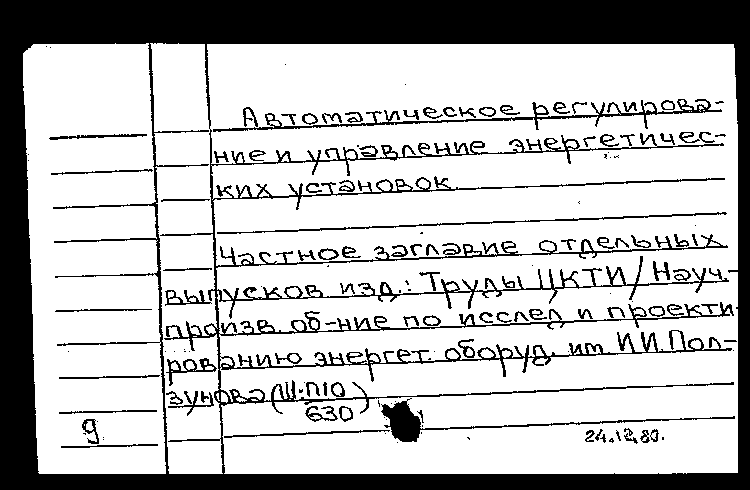 Автоматическое регулирова-
ние и управление энергетичес-
ких установок
Частное заглавие отдельных
выпусков изд.: Труды ЦКТИ/Науч.-
произв об-ние по исслед и проекти-
рованию энергет. оборуд. им И.И. Пол-
зунова (Ш:П10
630)
9
24.12.80.